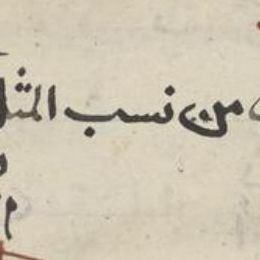 من نسب المثل